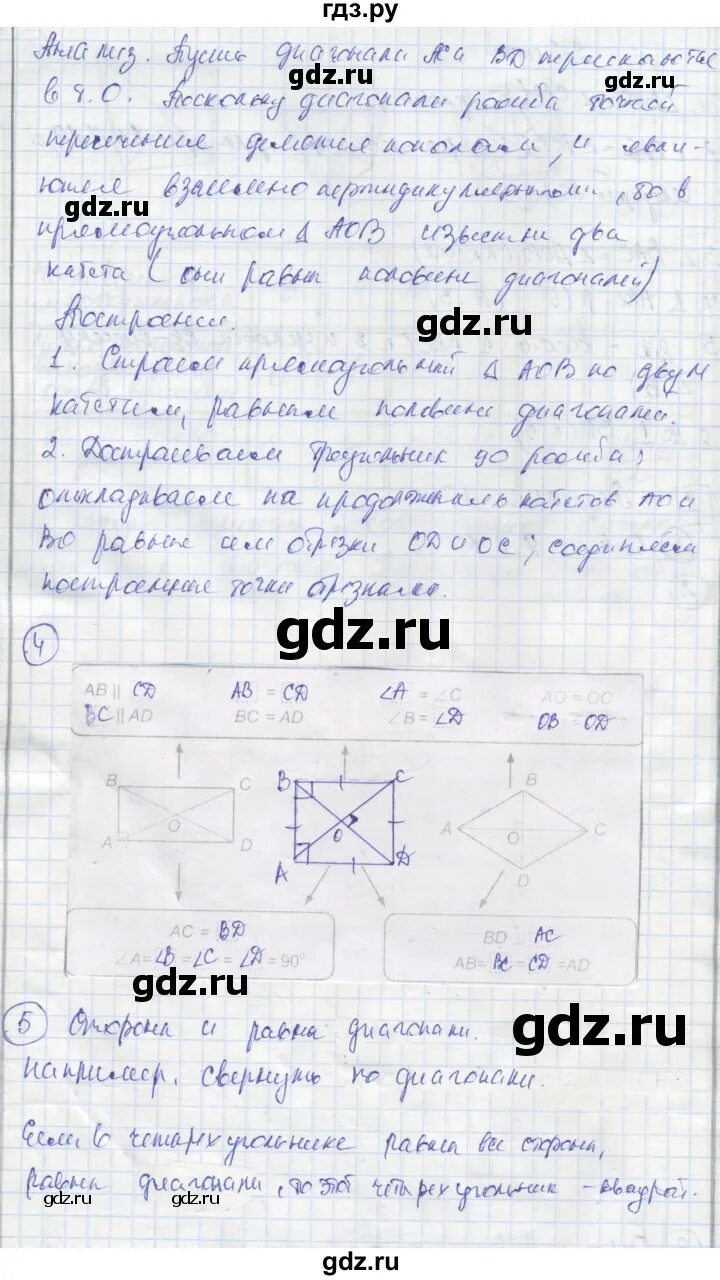 гдз.ру
Анализ. Пусть диагонали AC и BD пересекаются
в т. O. Поскольку диагонали ромба точкой
пересечения делятся пополам, и явля-
ются взаимно перпендикулярными, то в
прямоугольном Δ AOB известны два
катета (они равны половине диагоналей)
Построение.
1. Строим прямоугольный Δ AOB по двум
катетам, равным половине диагонали.
2. Достраиваем треугольник до ромба;
откладываем на продолжениях катетов AO и
BO равные им отрезки OD и OC; соединяем
построенные точки отрезками.
gdz.ru
gdz.ru
gdz.ru
gdz.ru
gdz.ru
4
AB || CD AB = CD ∠A = ∠C AO = OC
BC || AD BC = AD ∠B = ∠D OB = OD
B C B C B
O O A O C
A D A D D
AC = BD BD ⊥ AC
∠A=∠B =∠C =∠D =90° AB= BC =CD =AD
gdz.ru
gdz.ru
5 Стороны и равна диагонали.
Например, свернуть по диагонали.
Если в четырехугольнике равны все стороны,
равны диагонали, то этот четырехугольник - квадрат.
gdz.ru
gdz.ru
gdz.ru